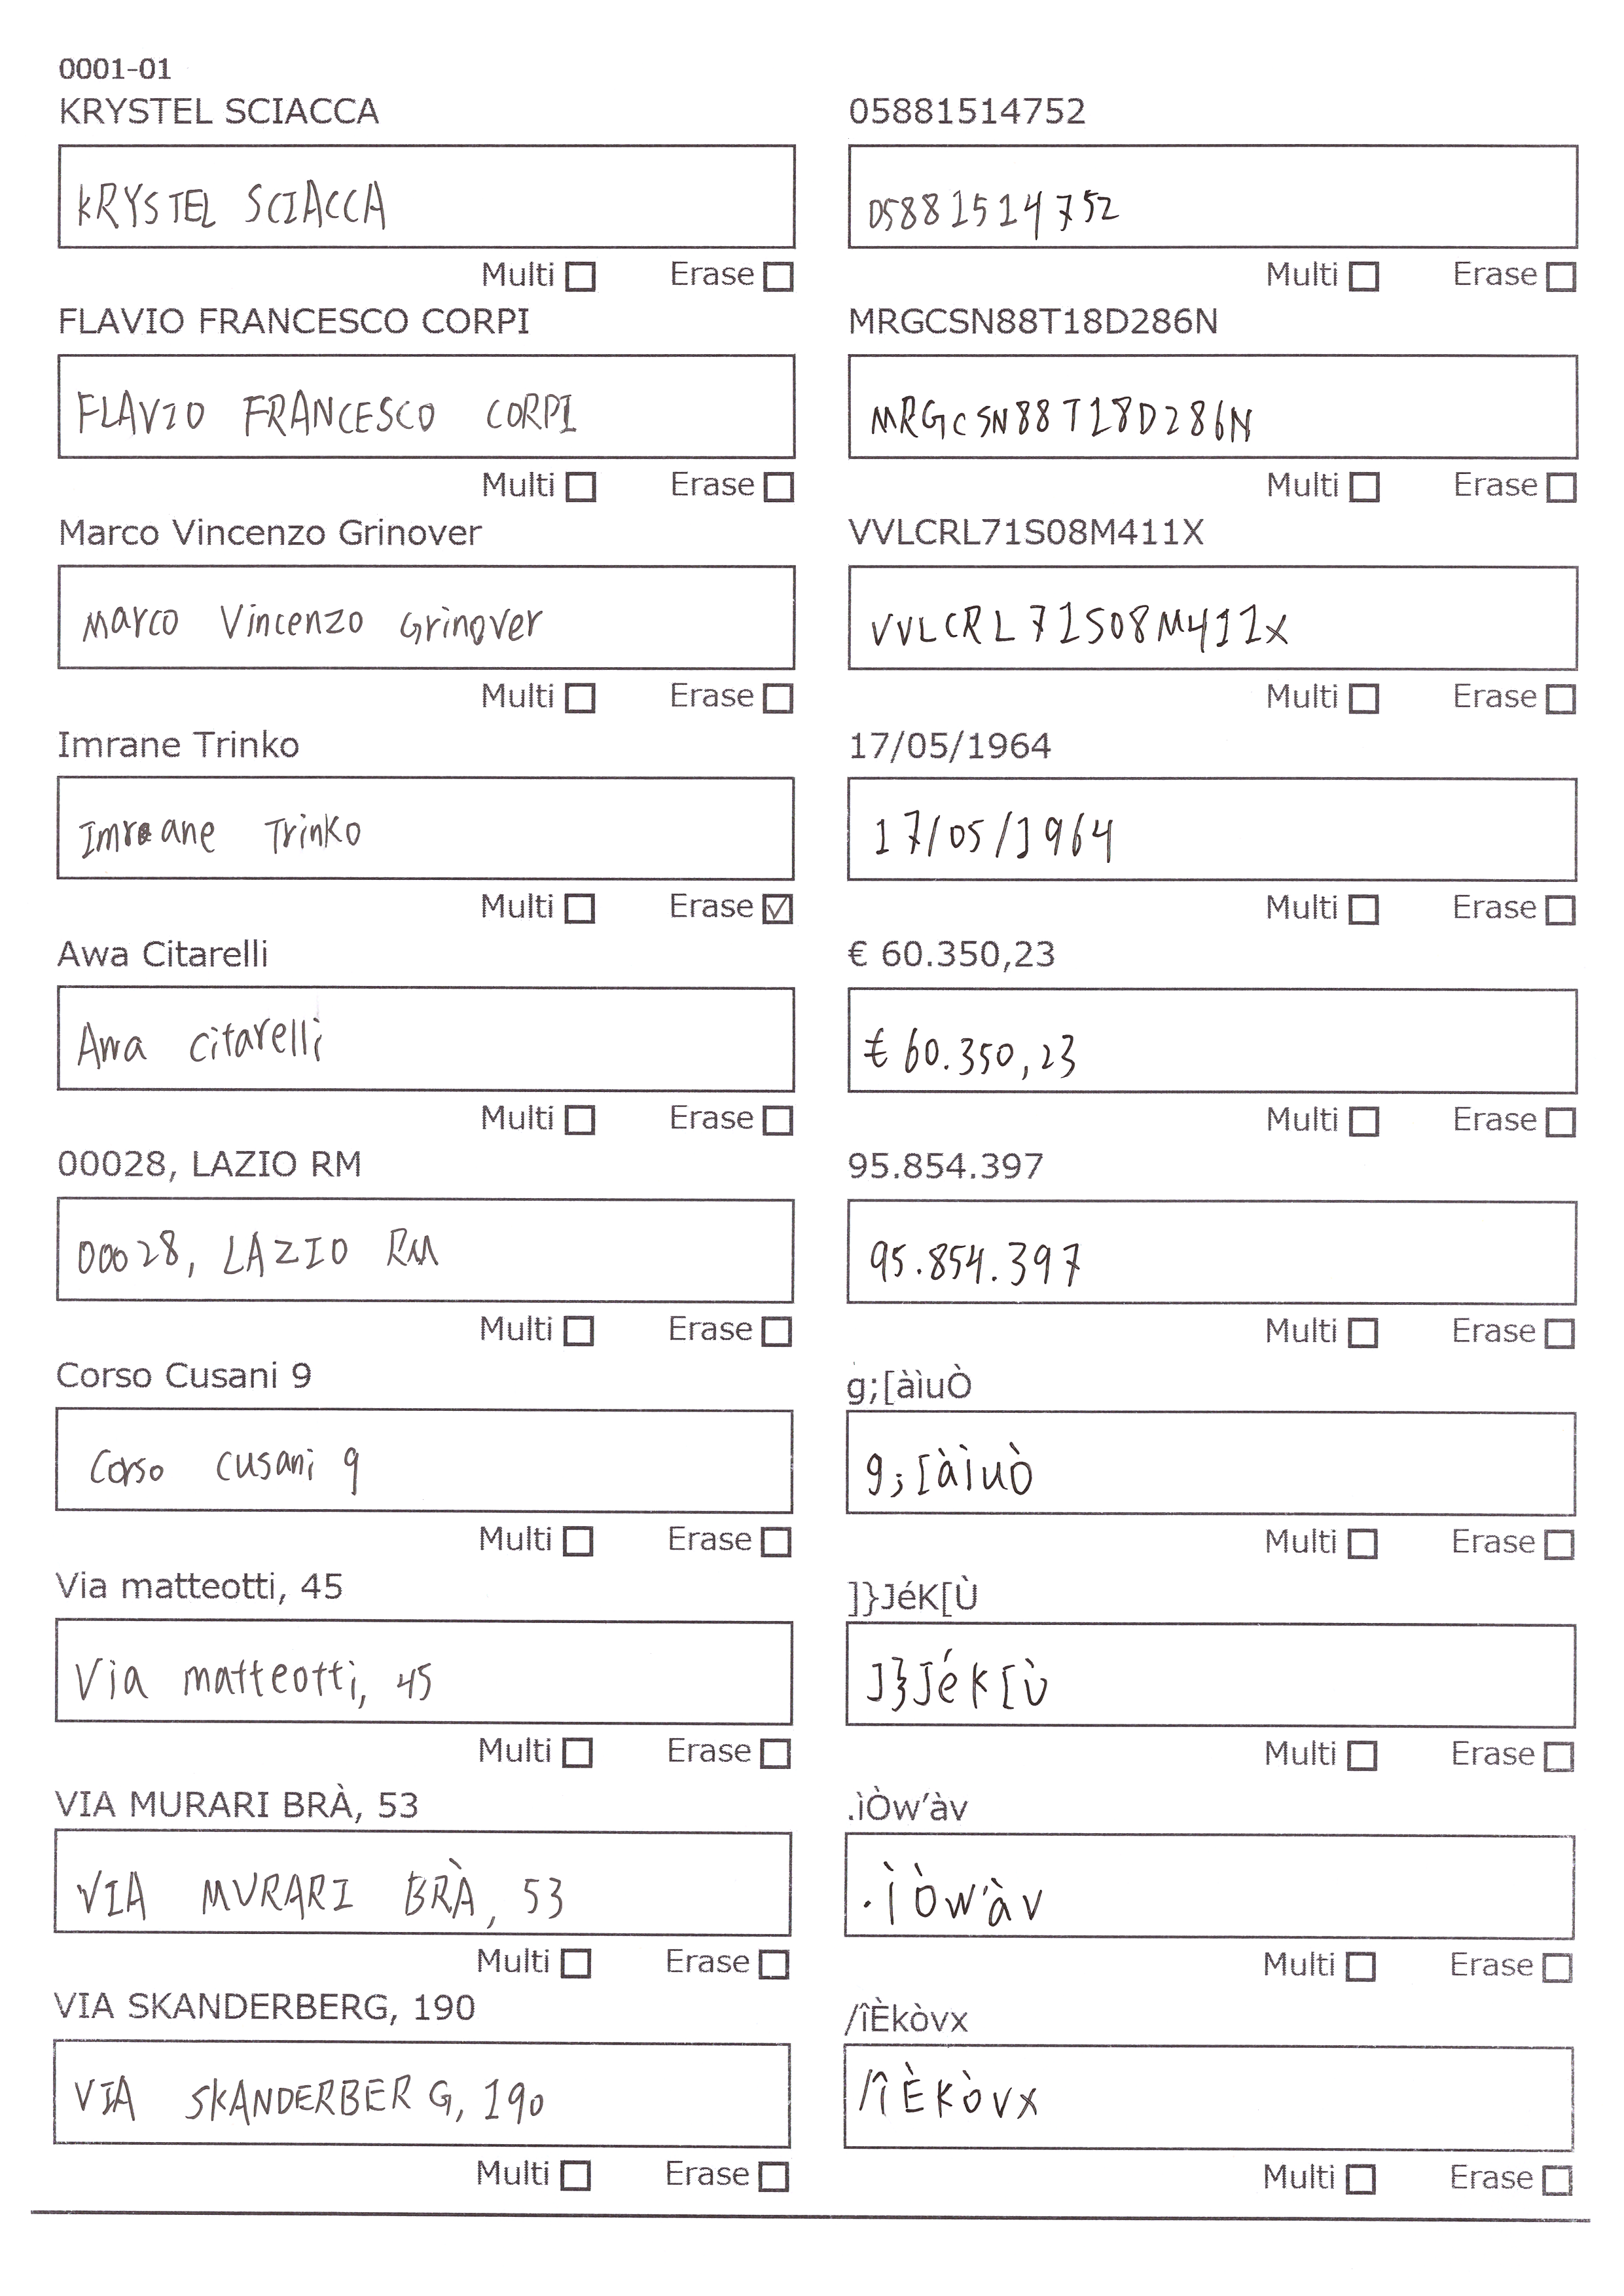 0001-01
KRYSTEL SCIACCA
KRYSTEL SCIACCA
Multi Erase
FLAVIO FRANCESCO CORPI
FLAVIO FRANCESCO CORPI
Multi Erase
Marco Vincenzo Grinover
Marco Vincenzo Grinover
Multi Erase
Imrane Trinko
Imrane Trinko
Multi Erase
Awa Citarelli
Awa Citarelli
Multi Erase
00028, LAZIO RM
00028, LAZIO RM
Multi Erase
Corso Cusani 9
Corso Cusani 9
Multi Erase
Via matteotti, 45
Via matteotti, 45
Multi Erase
VIA MURARI BRÀ, 53
VIA MURARI BRÀ, 53
Multi Erase
VIA SKANDERBERG, 190
VIA SKANDERBERG, 190
Multi Erase
05881514752
05881514752
Multi Erase
MRGCSN88T18D286N
MRGCSN88T18D286N
Multi Erase
VVLCRL71S08M411X
VVLCRL71S08M411X
Multi Erase
17/05/1964
17/05/1964
Multi Erase
€ 60.350,23
€ 60.350,23
Multi Erase
95.854.397
95.854.397
Multi Erase
g;[àìuÒ
g;[àìuÒ
Multi Erase
]}JéK[Ù
]}JéK[Ù
Multi Erase
.ìÒw'àv
.ìÒw'àv
Multi Erase
/îÈkòvx
/îÈkòvx
Multi Erase